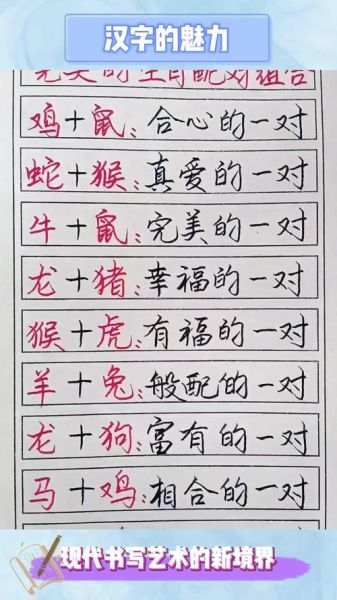 汉字的魅力
完美的生肖配对组合
鸡+鼠:合心的一对
蛇+猴:真爱的一对
牛+鼠:完美的一对
龙+猪:幸福的一对
猴+虎:有福的一对
羊+兔:般配的一对
龙+狗:富有的一对
马+鸡:相合的一对
现代书写艺术的新境界